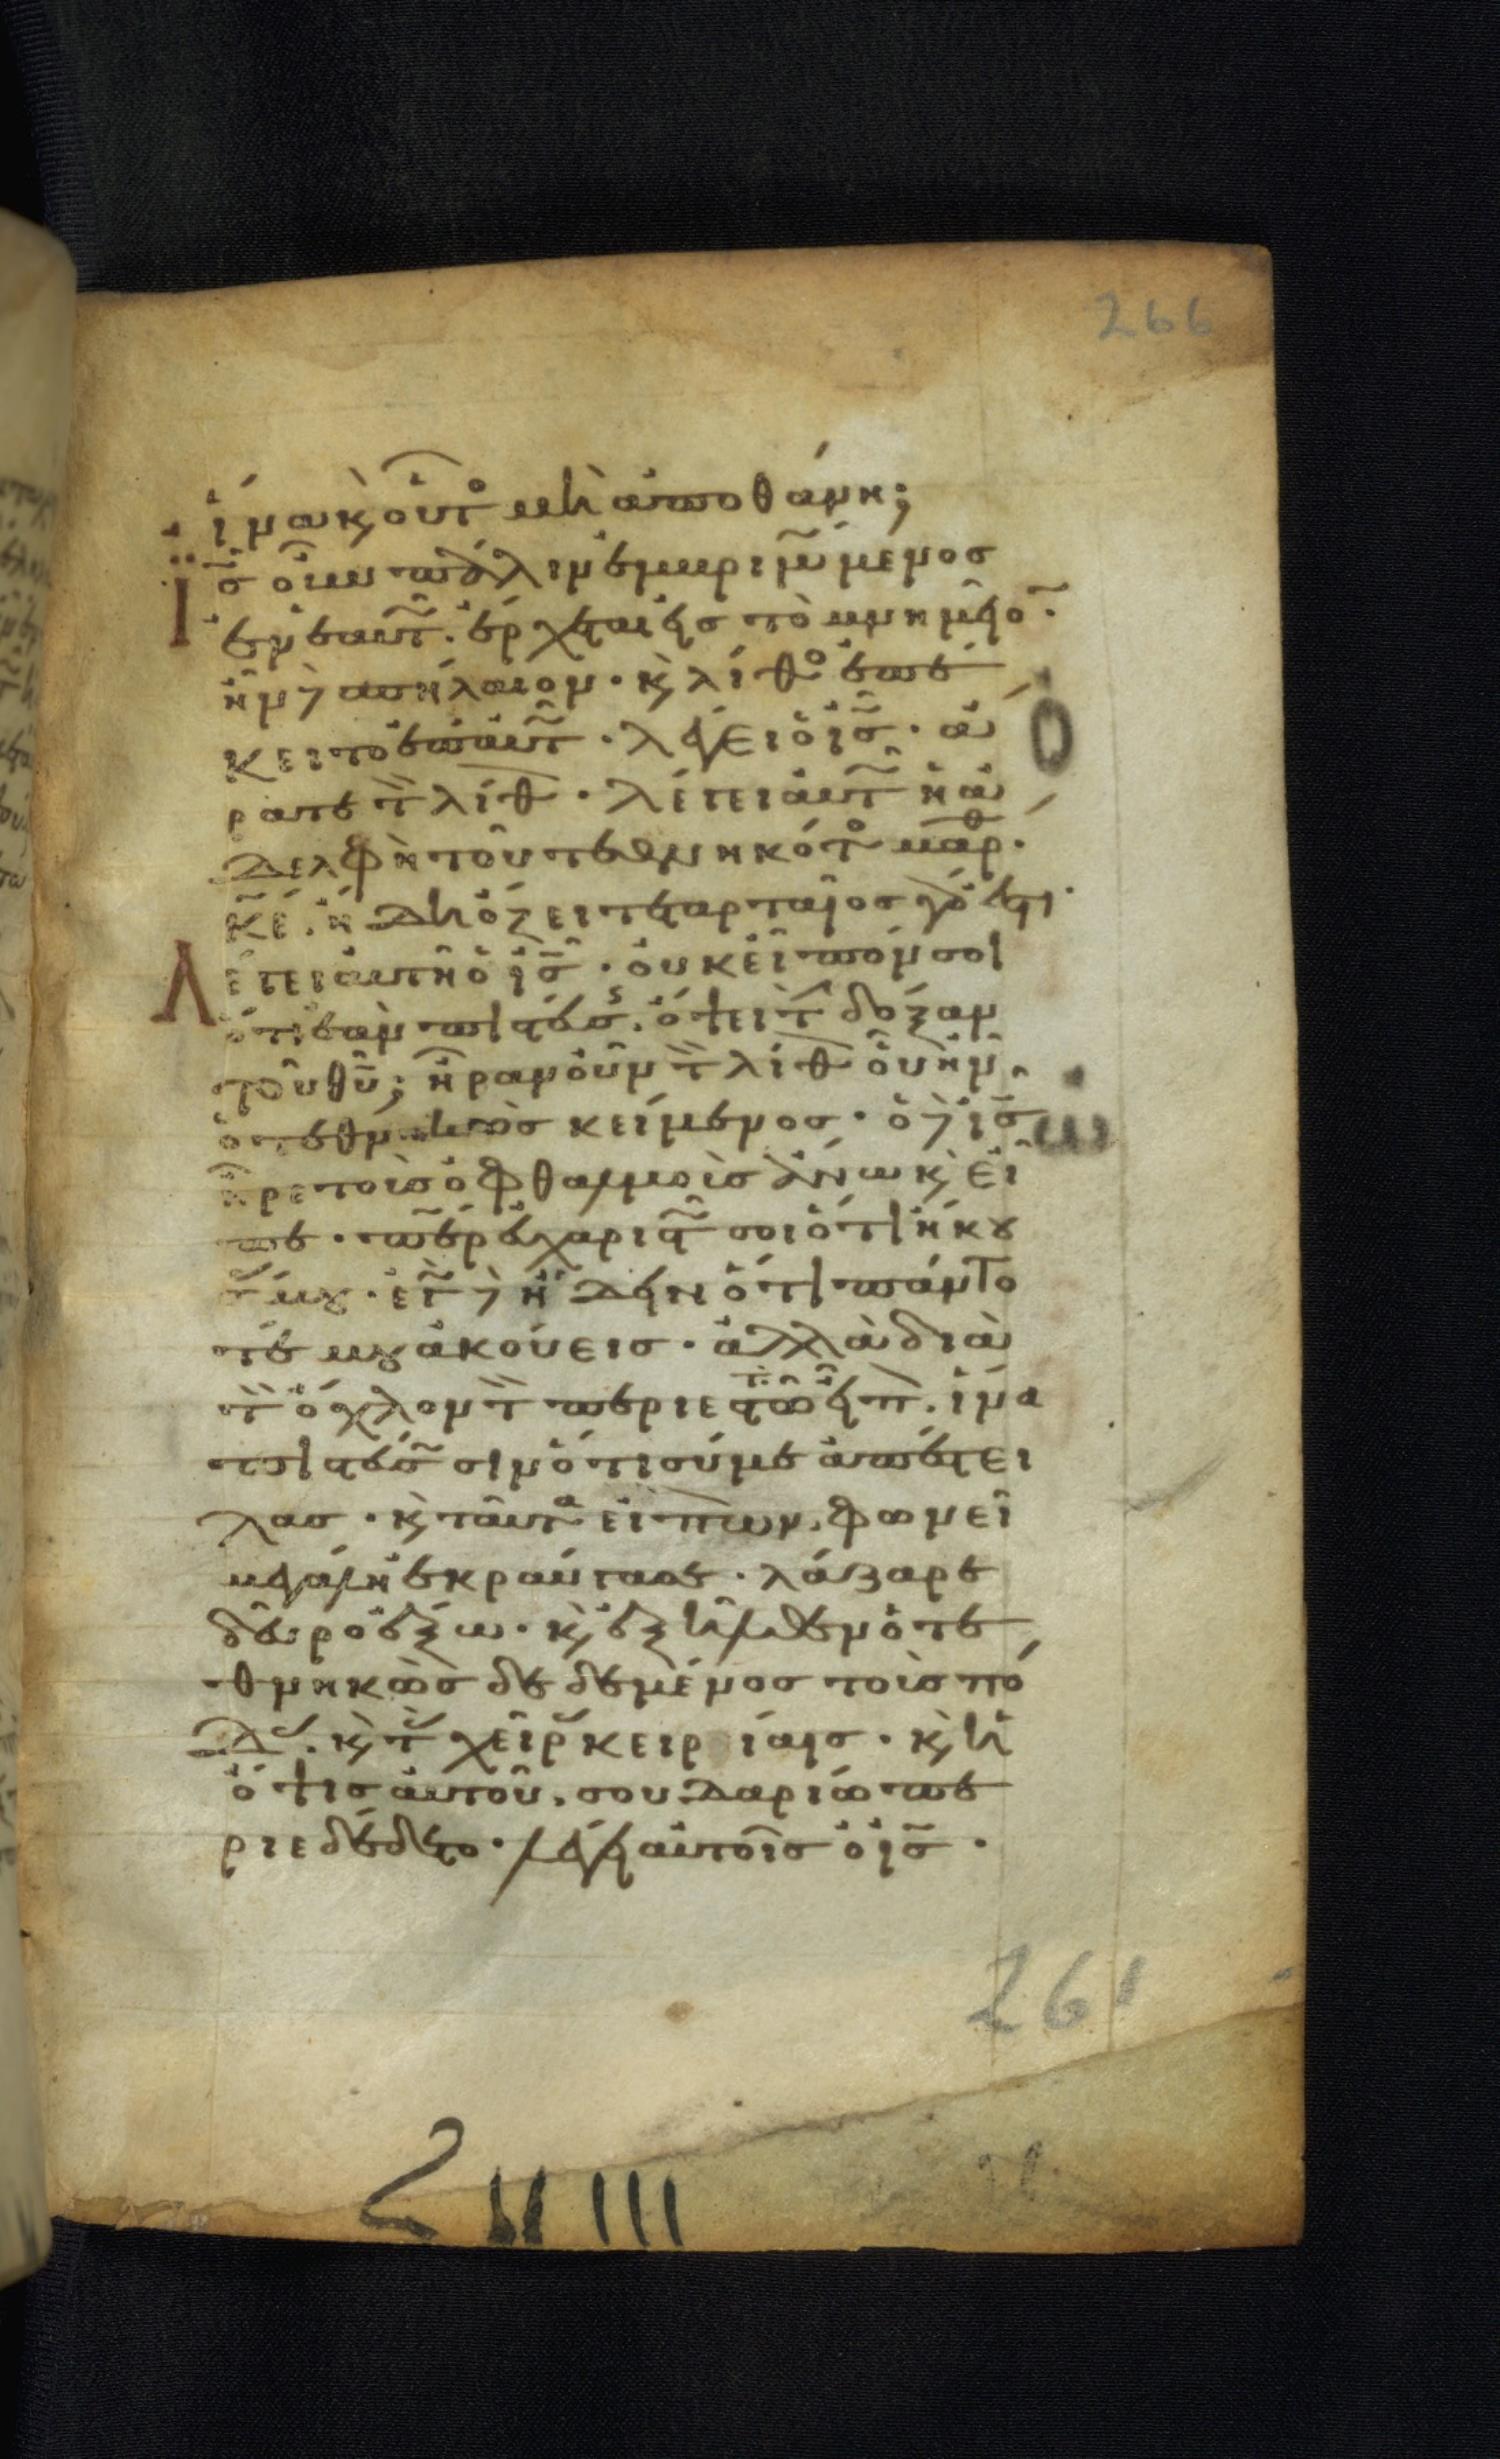 266
ἵνα κ(αὶ) οὗτο(ς) μὴ ἀποθάνη;
ῑς̄ οὖν πάλιν ἐμβριμώμενος
ἐν ἑαυτῶ. ἔρχεται εἰς τὸ μνημεῖο(ν).
ἦν δ(ὲ) σπήλαιον· κ(αὶ) λίθο(ς) ἐπέ
κειτο ἐπ' αὐτῶ· λέγει ὁ ῑς̄· ἄ
ρατε τ(ὸν) λίθ(ον)· λέγει αὐτῶ ἡ ἀ
δελφὴ τοῦ τεθνηκότο(ς) μάρθ(α).
κ̄ε̄. ἤδη ὄζει τεταρταῖος γάρ ἐστι·
Λέγει αὐτῆ ὁ ῑς̄· οὐκ εἶπόν σοι
ὅτι ἐὰν πιστεύσ(ης). ὄψει τ(ὴν) δόξαν
τοῦ θ̄ῡ; ἦραν οὖν τ(ὸν) λίθ(ον) οὗ ἦν
ὁ τεθνηκὼς κείμενος· ὁ δ(ὲ) ῑς̄
ἦρε τοὺς ὀφθαλμοὺς ἄνω κ(αὶ) εἶ
πε· π̄ερ εὐχαριστῶ σοι ὅτι ἤκου
σάς μου· ἐγὼ δ(ὲ) ἤδειν ὅτι πάντο
τέ μου ἀκούεις· ἀλλὰ διὰ
τ(ὸν) ὄχλον τ(ὸν) περιεστῶτ(α) εἶπ(ον). ἵνα
πιστεύσωσιν ὅτι σύ με ἀπέστει
λας· κ(αὶ) ταῦτα εἰπὼν. φωνῆ
μεγάλη ἐκραύγασε· λάζαρε
δεῦρο ἔξω· κ(αὶ) ἐξῆλθεν ὁ τε
θνηκὼς δεδεμένος τοὺς πό
δ(ας). κ(αὶ) τ(ὰς) χεῖρ(ας) κειρίαις· κ(αὶ) ἡ
ὄψις αὐτοῦ. σουδαρίω πε
ριεδέδετο· λέγει αὐτοῖς ὁ ῑς̄·
261